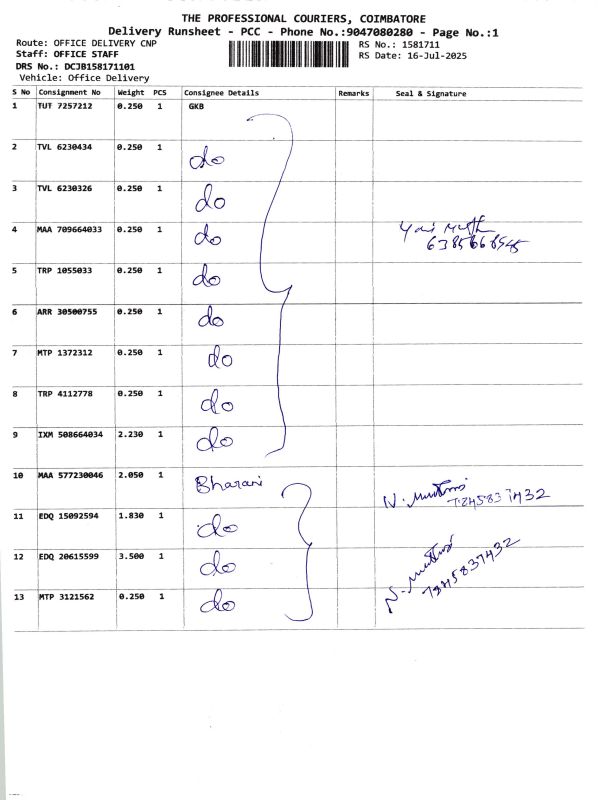 THE PROFESSIONAL COURIERS, COIMBATORE
Delivery Runsheet - PCC - Phone No.:9047080280 - Page No.:1
Route: OFFICE DELIVERY CNP
RS No.: 1581711
Staff: OFFICE STAFF
RS Date: 16-Jul-2025
DRS No.: DCJB158171101
Vehicle: Office Delivery
S No Consignment No Weight PCS Consignee Details Remarks Seal & Signature
1 TUT 7257212 0.250 1 GKB
2 TVL 6230434 0.250 1 do
3 TVL 6230326 0.250 1 do
4 MAA 709664033 0.250 1 do
5 TRP 1055033 0.250 1 do
6 ARR 30500755 0.250 1 do
7 MTP 1372312 0.250 1 do
8 TRP 4112778 0.250 1 do
9 IXM 508664034 2.230 1 do
10 MAA 577230046 2.050 1 Bharani
7845837432
11 EDQ 15092594 1.830 1 do
12 EDQ 20615599 3.500 1 do
7845837432
13 MTP 3121562 0.250 1 do